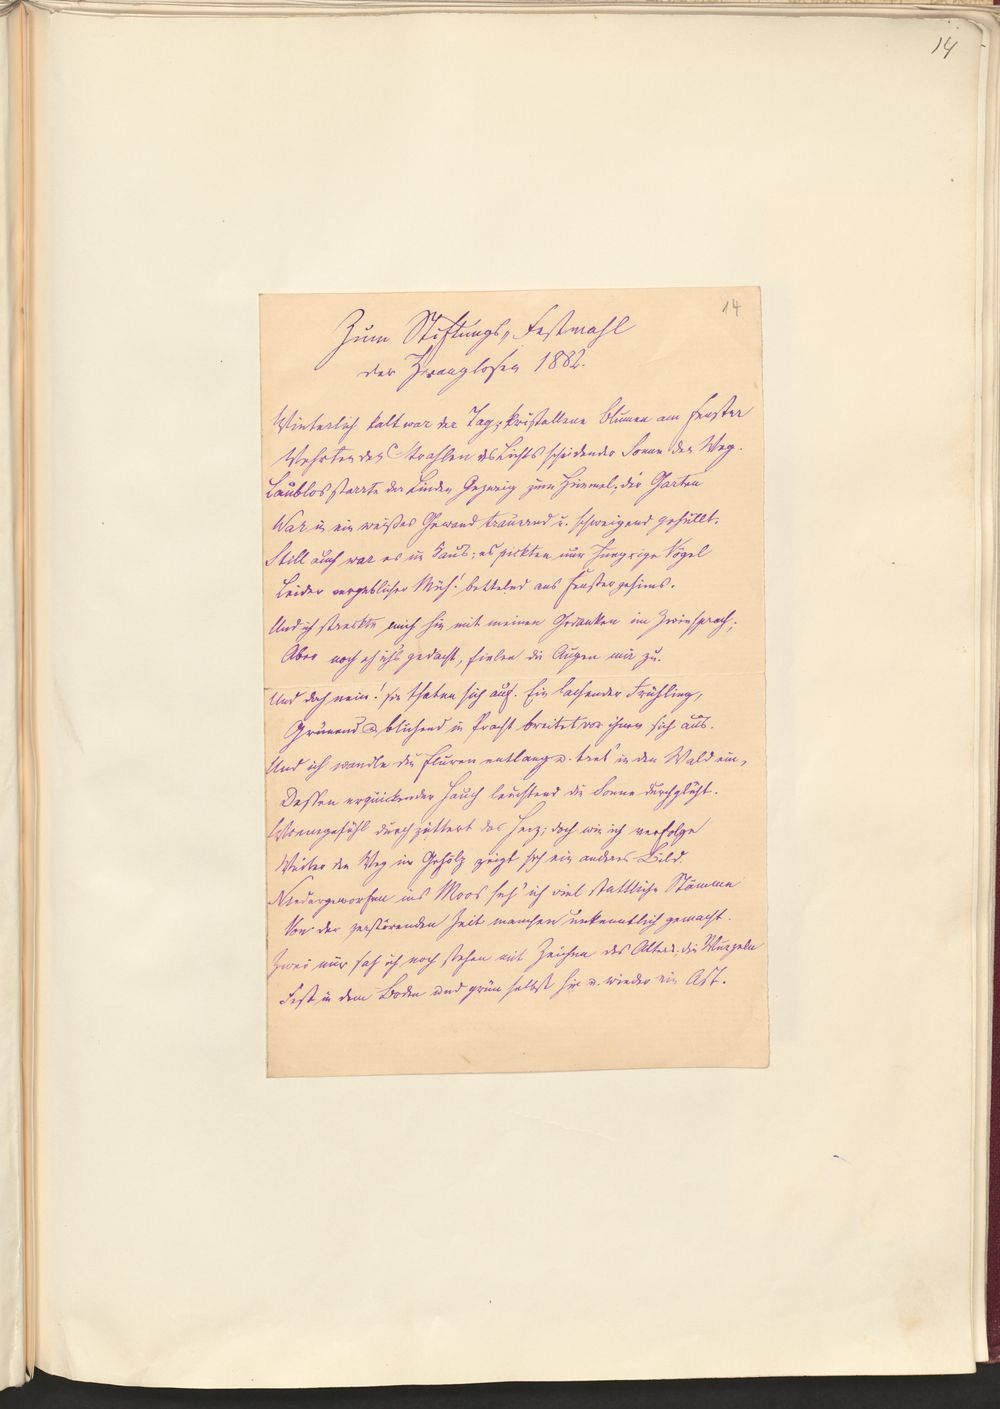 14
14
Zum Stiftungs-Festmahl
der Zwanglosen 1882.
Winterlich kalt war der Tag; kristallene Blumen am Fenster
Wehrten den Strahlen des Lichts scheidender Sonne den Weg.
Laublos starrte der Linden Gezweig zum Himmel; der Garten
War in ein weißes Gewand trauernd u. schweigend gehüllt.
Still auch war es im Haus; es pickten nur hungrige Vögel
Leider vergeblicher Müh! bettelnd ans Fenstergesims.
Und ich streckte mich hin mit meinen Gedanken im Zwiesprach;
Aber noch eh ich's gedacht, fielen die Augen mir zu.
Und doch nein! sie thaten sich auf. Ein lachender Frühling,
Grünend & blühend in Pracht breitet vor ihnen sich aus.
Und ich wandle die Fluren entlang u. tret' in den Wald ein,
Dessen erquickender Hauch leuchtend die Sonne durchglüht.
Wonnegefühl durchzittert das Herz; doch wie ich verfolge
Weiter den Weg im Gehölz zeigt sich ein anderes Bild.
Niedergeworfen ins Moos seh' ich viel stattliche Stämme
Von der zerstörenden Zeit manchen unkenntlich gemacht.
Zwei nur sah ich noch stehen mit Zeichen des Alters, die Wurzeln
Fest in dem Boden und grün selbst hin u. wieder ein Ast.